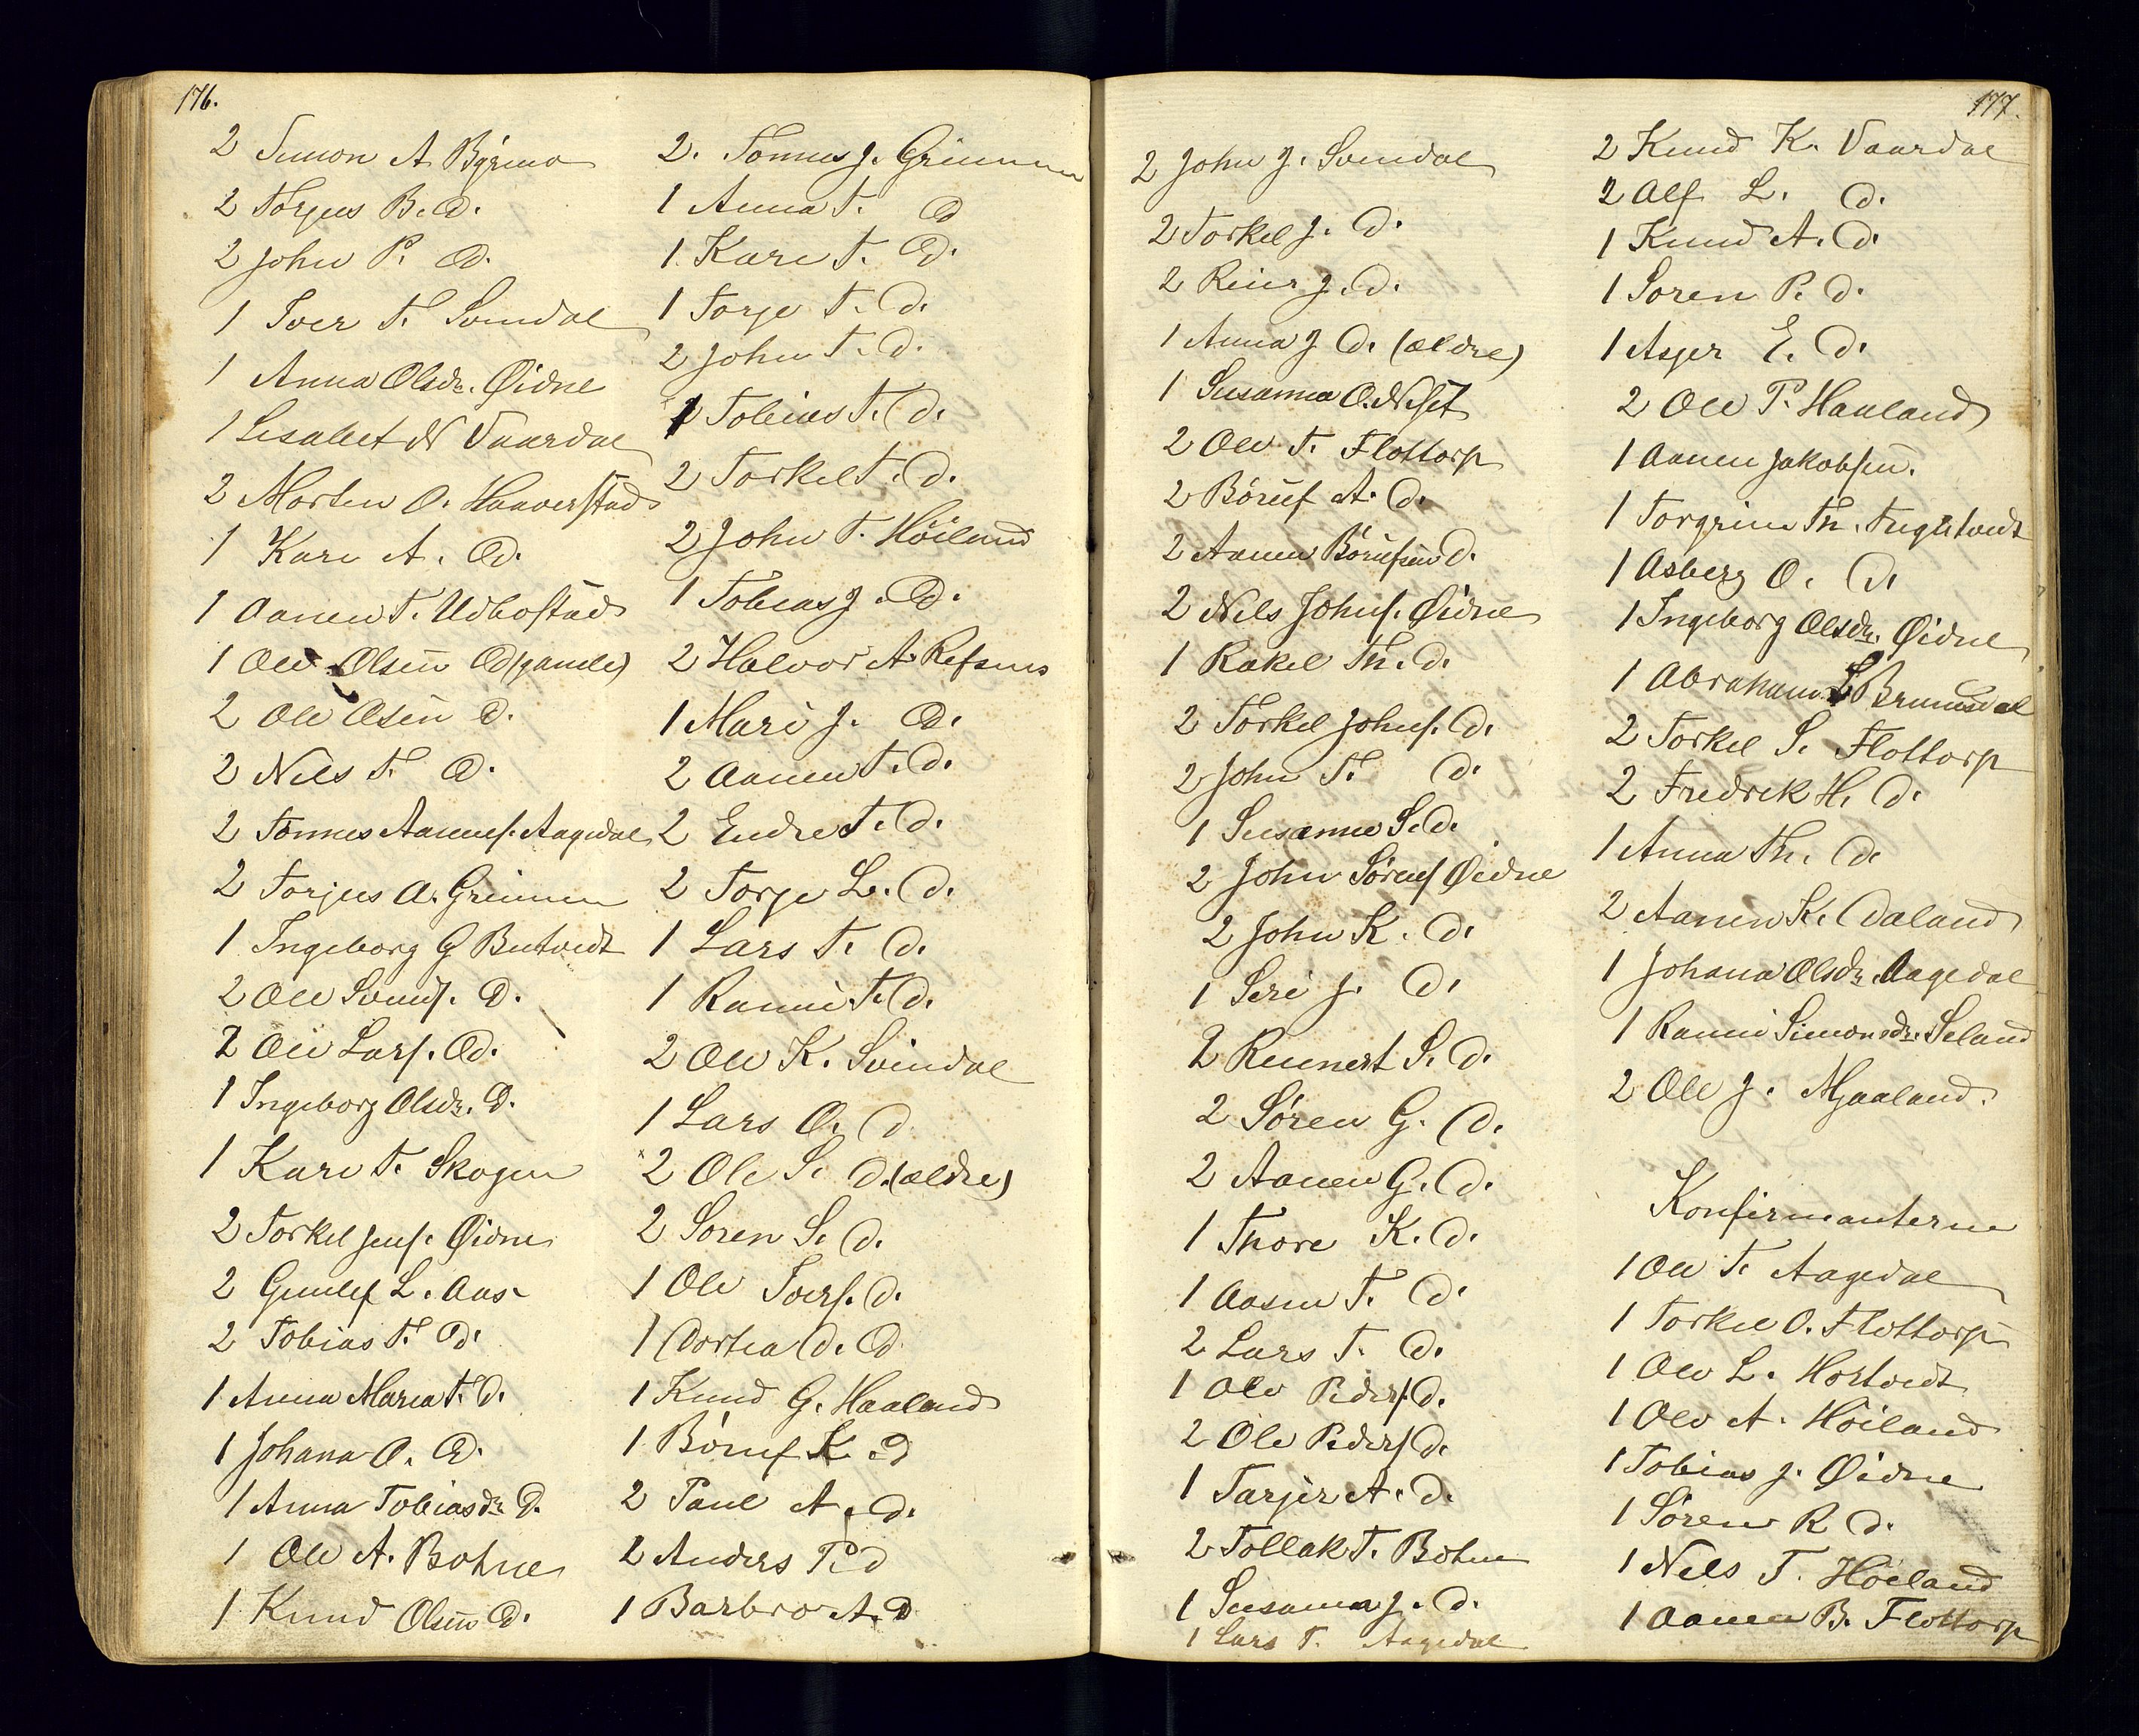 176.
2 Simon A. Byremo
2 Torjus B. D.
2 John P. D.
1 Iver T. Svindal
1 Anna Olsdr. Øidne
1 Lisabet N Vaardal
2 Morten O. Haaverstad
1 Kari A. D.
1 Aanen T. Udbostad
1 Ole Olsen D (gamle)
2 Ole Olsen D.
2 Nils T. D.
2 Tønnes Aanens. Aagedal
2 Torjus A. Grimmen
1 Ingeborg G Butvedt
2 Ole Svends. D.
2 Ole Lars. D.
1 Ingeborg Olsdr. D.
1 Kari T. Skogen
2 Torkel Jens. Øidne
2 Gunlef L. Aas
2 Tobias T. D.
1 Anna Maria T. D.
1 Johana O. D.
1 Anna Tobiasdr. D.
1 Ole A. Bohne
1 Knud Olsen D.
2. Tønnes J. Grimmen
1 Anna T. D
1 Kari T. D.
1 Torje T. D.
2 John T. D.
1 Tobias T. D.
2 Torkel T. D.
2 John T. Høiland
1 Tobias J. D.
2 Halvor A. Refsnes
1 Mari J. D.
2 Aanen T. D.
2 Endre T. D.
2 Torje L. D.
1 Lars T. D.
1 Ranni T. D.
2 Ole K. Svindal
1 Lars O. D
2 Ole S. D. (ældre)
2 Soren S. D.
1 Ole Ivers. D.
1 Dortea D. D.
1 Knud G. Haaland
1 Børuf K. D
2 Paul A. D.
2 Anders P. D
1 Barbro A. D
177.
2 John J. Svindal
2 Torkel J. D.
2 Reier J. D.
1 Anna J D. (ældre)
1 Susanna O. Neset
2 Ole T. Flottorp
2 Børuf A. D.
2 Aanen Børufsen D.
2 Nils Johns. Øidne
1 Rakel Th. D.
2 Torkel Johns. D.
2 John T. D.
1 Susanne S. D.
2 John Sørens Øidne
2 John K. D.
1 Siri J. D.
2 Reinert S. D.
2 Søren G. D.
2 Aanen G. D.
1 Thore K. D.
1 Aasen T. D.
2 Lars T. D.
1 Ole Peders. D.
2 Ole Peders D.
1 Tarjer A. D.
2 Tollak T. Bohne
1 Susanna J. D.
1 Lars T. Aagedal
2 Knud K. Vaardal
2 Alf L. D.
1 Knud A. D.
1 Soren P. D.
1 Asjer E. D.
2 Ole P. Haaland
1 Aanen Jakobsen.
1 Torgrim Th. Fuglestvedt
1 Asberg O. D.
1 Ingeborg Olsdr. Øidne
1 Abraham L Brunsdal
2 Torkel S. Flottorp
2 Fredrek H. D.
1 Anna Th. D.
2 Aanen K. Daland
1 Johana Olsdr. Aagedal
1 Ranni Simonsdr. Seland
2 Ole J. Mjaaland.
Konfirmanterne
1 Ole T. Aagedal
1 Torkel O. Flottorp
1 Ole L. Hortvedt
1 Ole A. Høiland
1 Tobias J. Øidne
1 Søren R D.
1 Nils T. Høiland
1 Aanen B. Flottorp